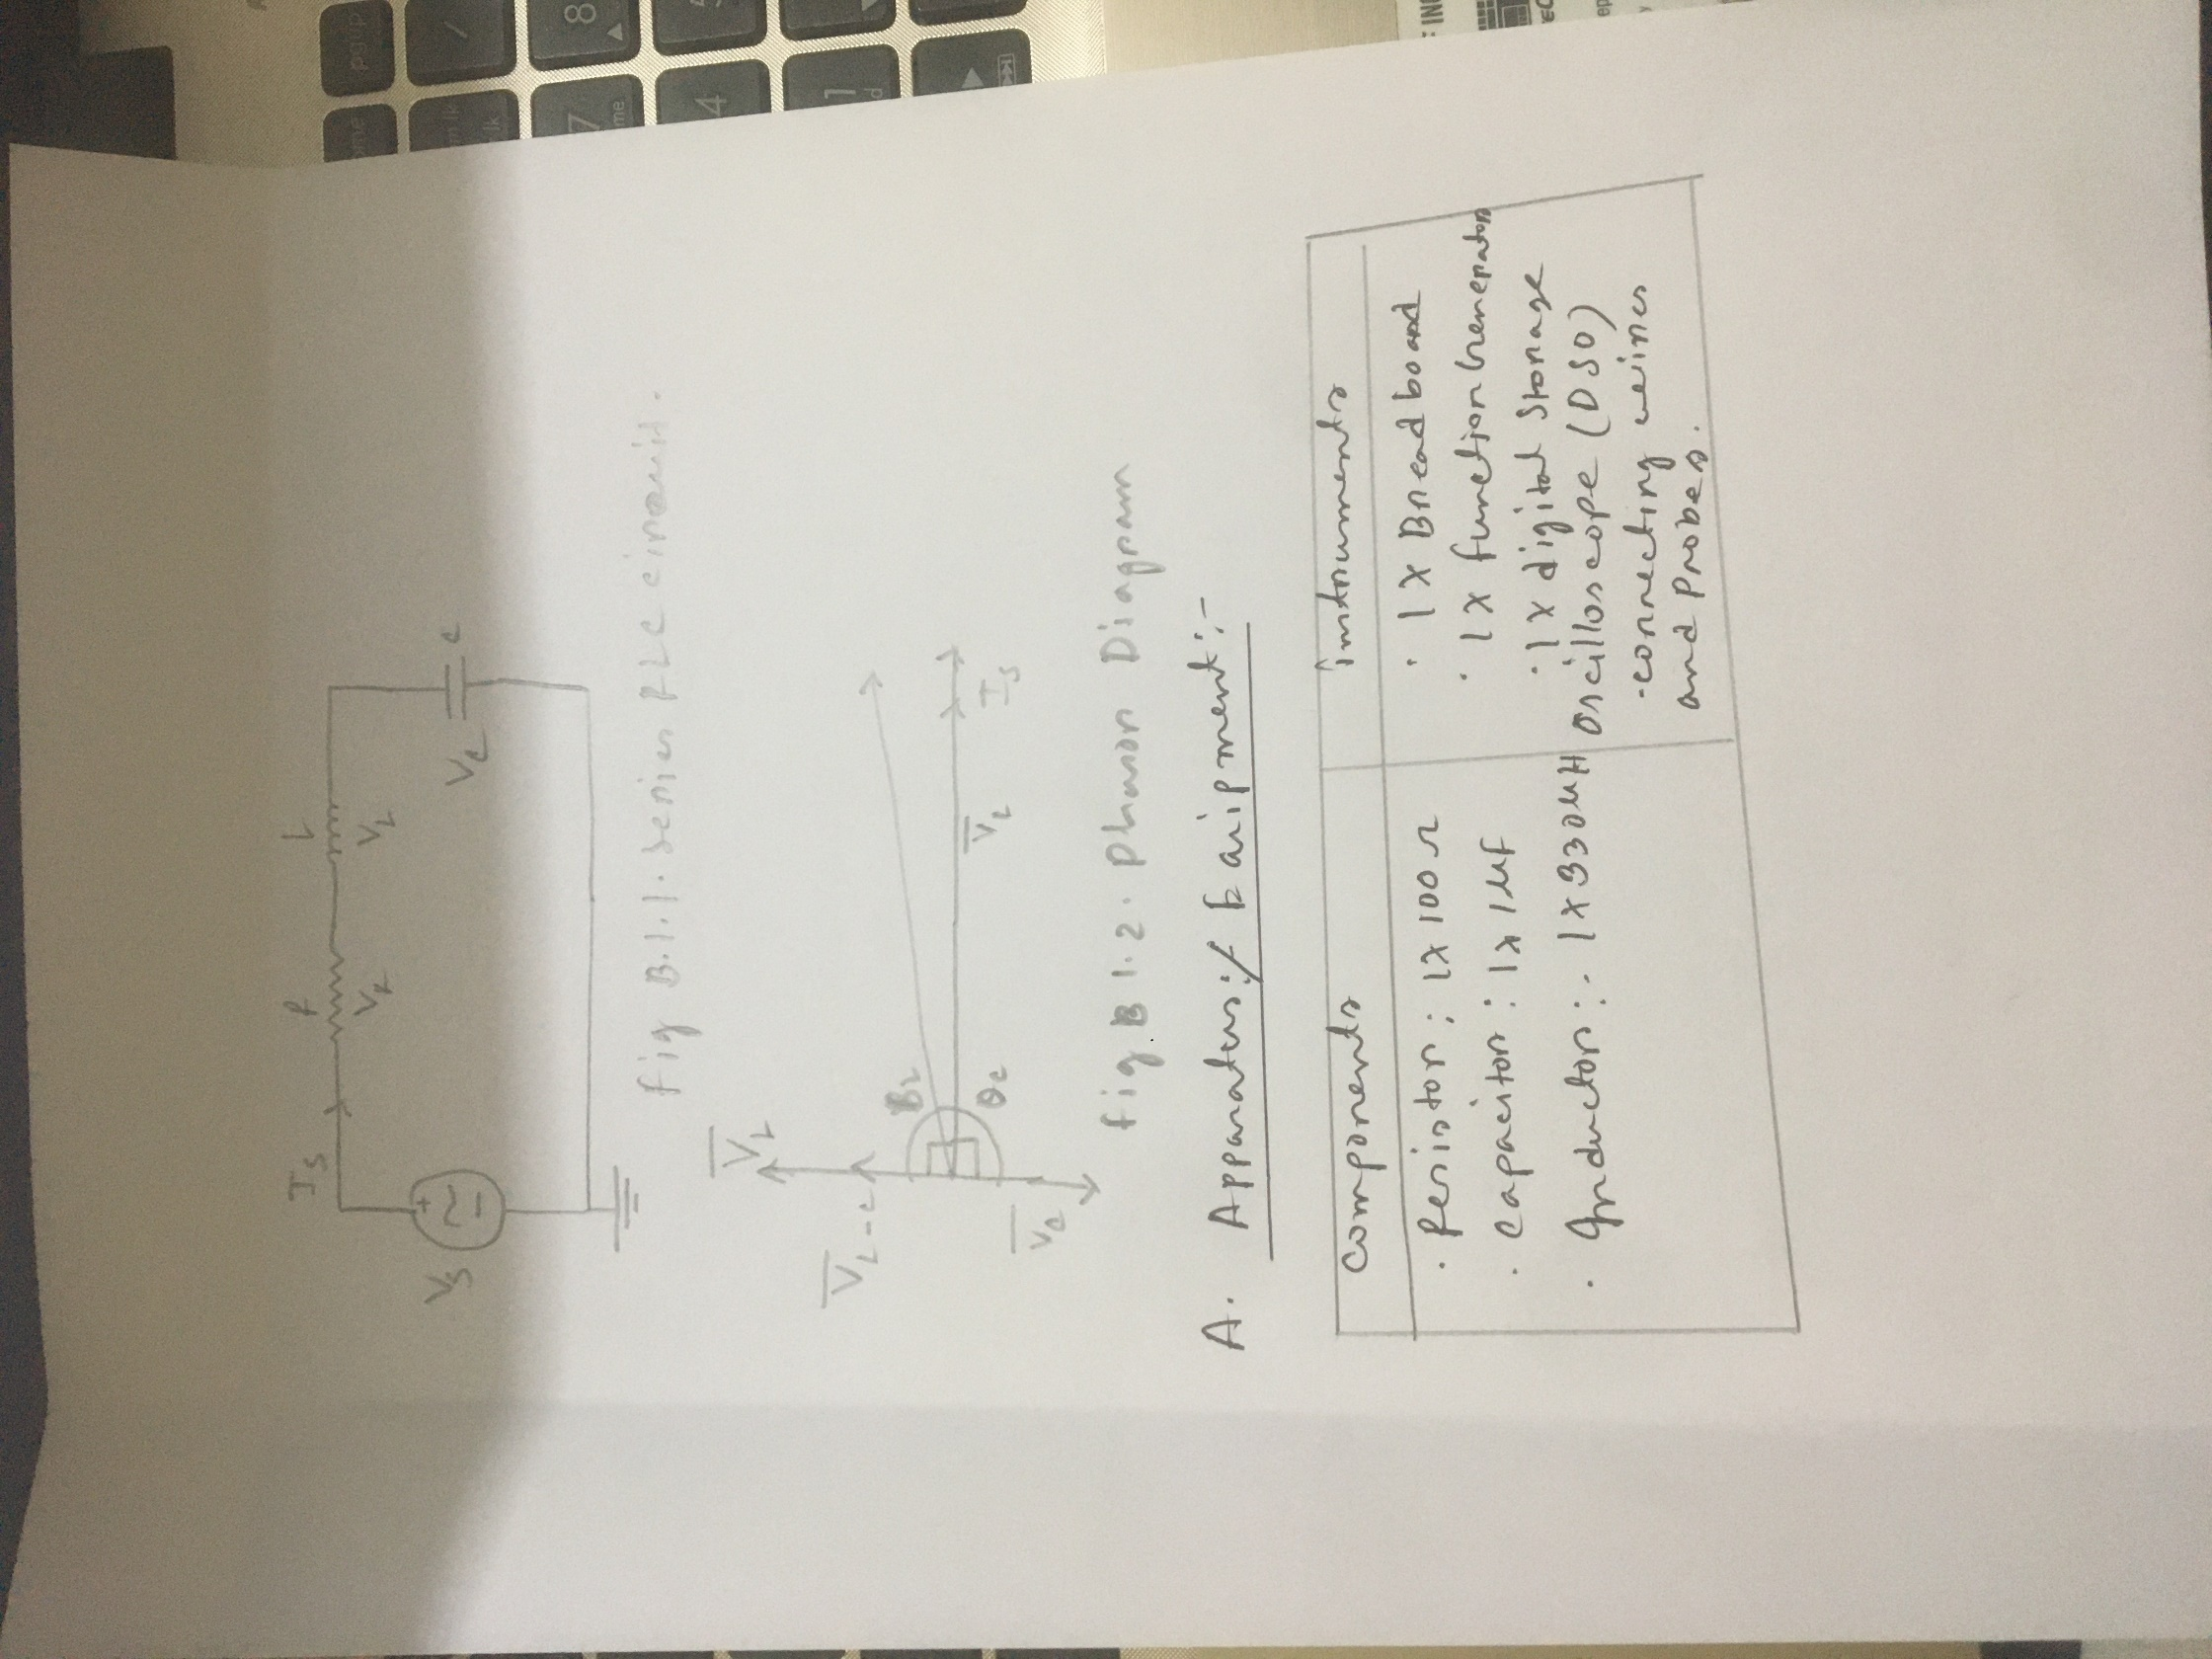 Is
R
L
VR
VL
Vs
+
~
−
Vc
c
fig B.1.1. series RLC circuit.
VL
VL-c
BL
θc
Vc
VL
Is
fig B 1.2. Phasor Diagram
A. Apparatus:/ Equipment:-
components
instruments
· Resistor: 1x 100Ω
· capacitor: 1x 1µf
· Inductor:- 1x330µH
· 1x Breadboard
· 1x function Generator
· 1x digital storage
oscilloscope (DSO)
·connecting wires
and probes.
pg up
/
8
7
4
1